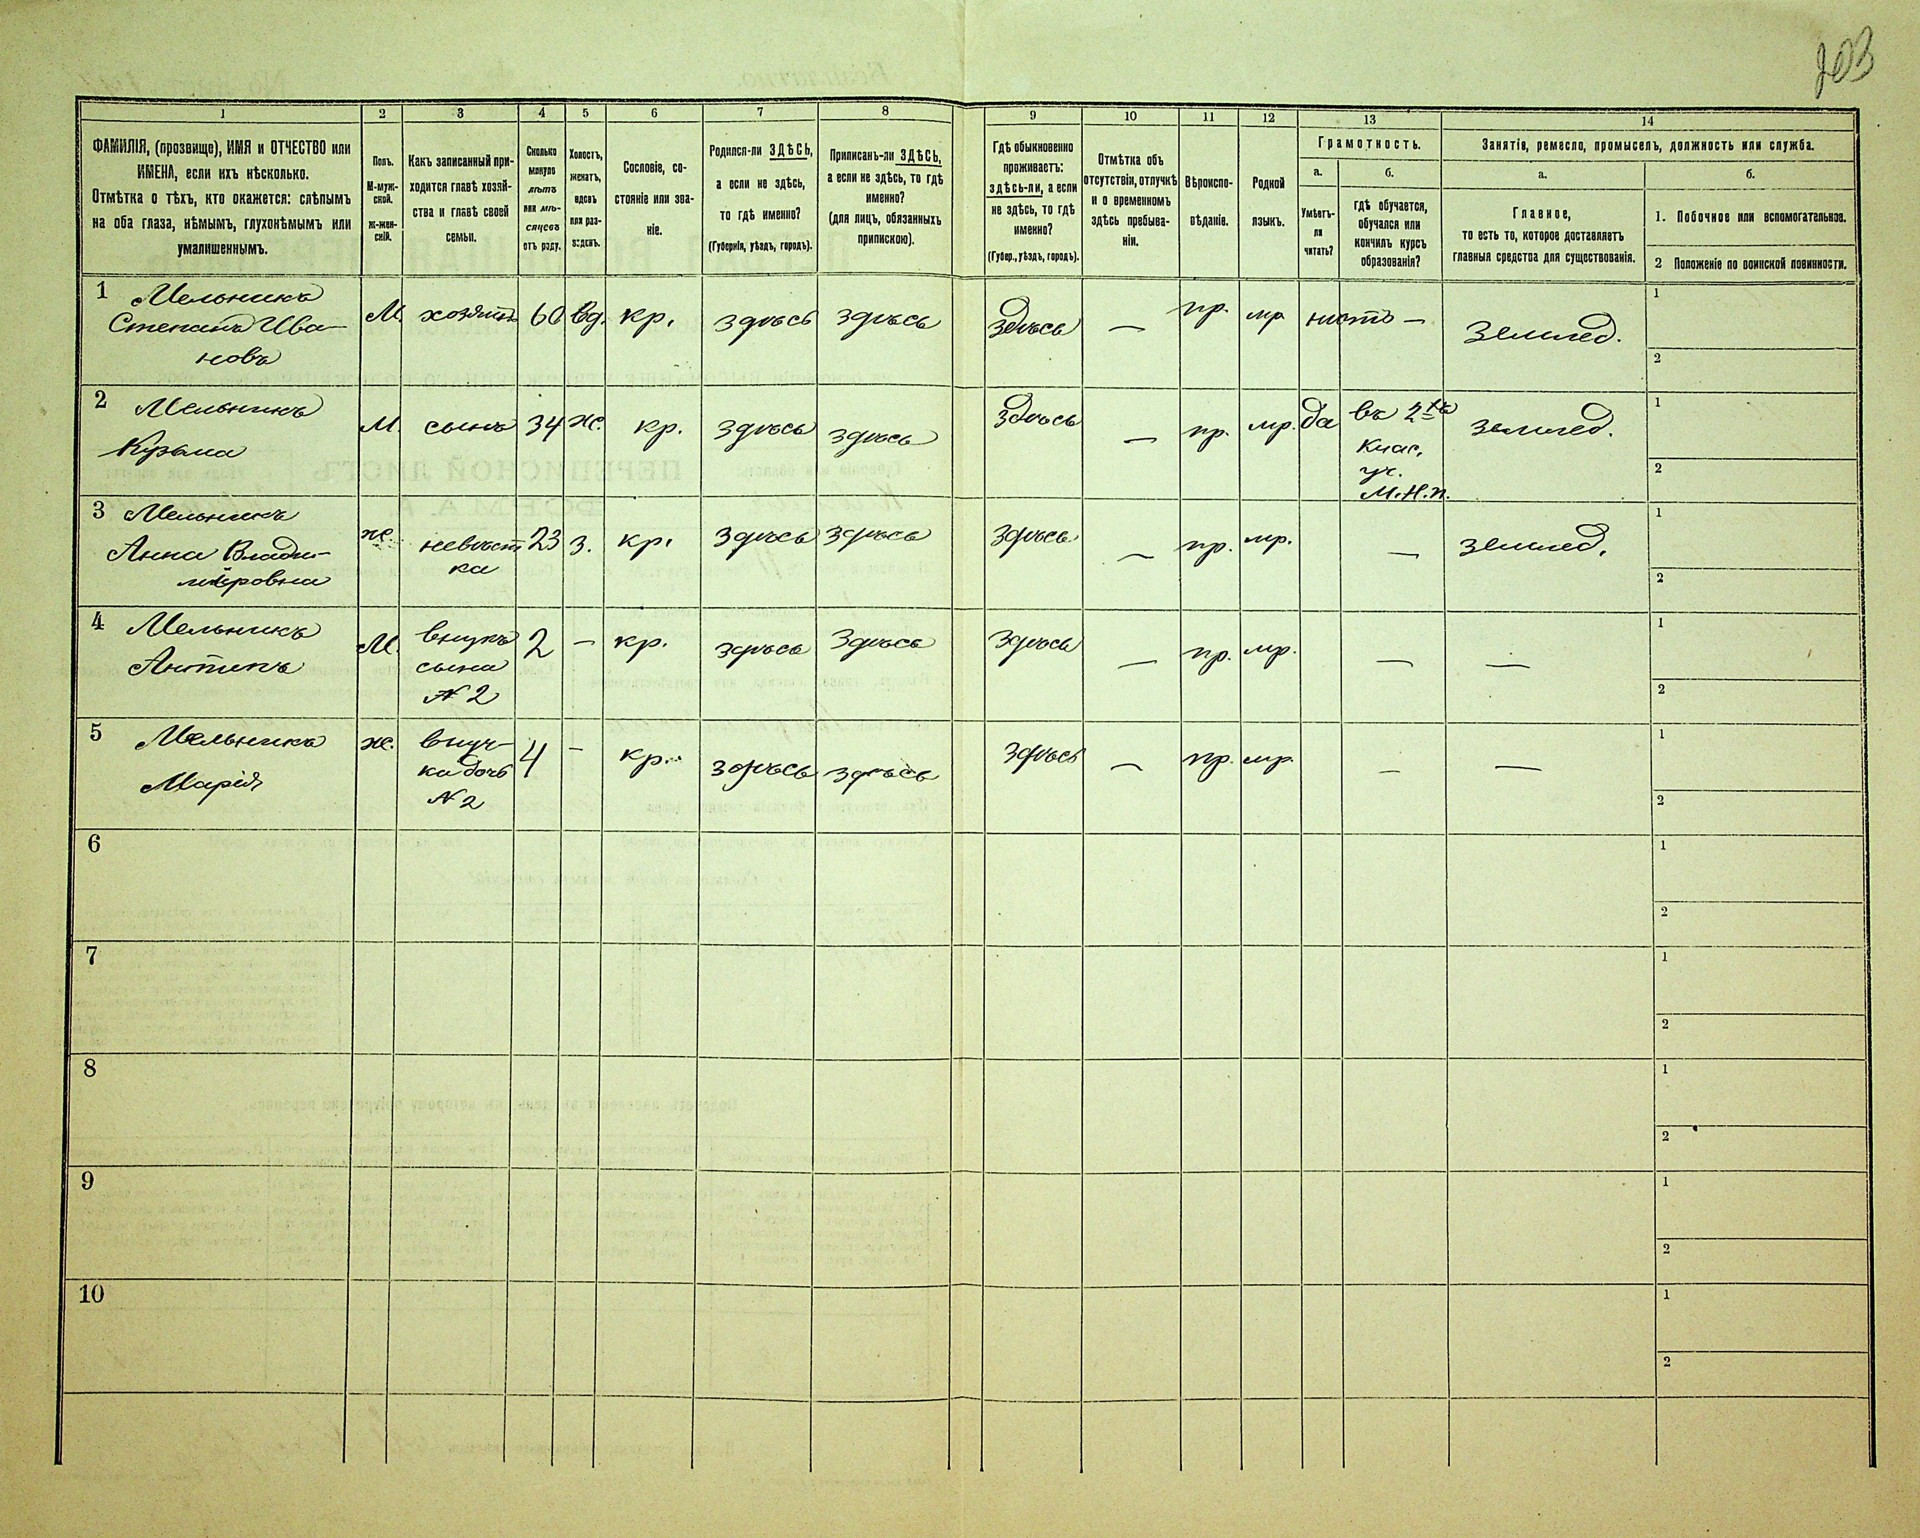 203
1
2
3
4
5
6
7
8
9
10
11
12
13
14
ФАМИЛІЯ, (прозвище), ИМЯ и ОТЧЕСТВО или
ИМЕНА, если ихъ нѣсколько.
Отмѣтка о тѣхъ, кто окажется: слѣпымъ
на оба глаза, нѣмымъ, глухонѣмымъ или
умалишеннымъ.
Полъ.
М-муж-
ской.
ж-жен-
скій.
Какъ записанный при-
ходится главѣ хозяй-
ства и главѣ своей
семьи.
Сколько
минуло
лѣтъ
или мѣ-
сяцевъ
отъ роду.
Холостъ,
женатъ,
вдовъ
или раз-
веденъ.
Сословіе, со-
стояніе или зва-
ніе.
Родился-ли ЗДѢСЬ,
а если не здѣсь,
то гдѣ именно?
(Губернія, уѣздъ, городъ).
Приписанъ-ли ЗДѢСЬ,
а если не здѣсь, то гдѣ
именно?
(для лицъ, обязанныхъ
припискою).
Гдѣ обыкновенно
проживаетъ:
здѣсь-ли, а если
не здѣсь, то гдѣ
именно?
(Губер., уѣздъ, городъ).
Отмѣтка объ
отсутствіи, отлучкѣ
и о временномъ
здѣсь пребыва-
ніи.
Вѣроиспо-
вѣданіе.
Родной
языкъ.
Грамотность.
а.
Умѣетъ-
ли
читать?
б.
гдѣ обучается,
обучался или
кончилъ курсъ
образованія?
Занятіе, ремесло, промыселъ, должность или служба.
а.
Главное,
то есть то, которое доставляетъ
главныя средства для существованія.
б.
1. Побочное или вспомогательное.
2 Положеніе по воинской повинности.
1 Мельникъ
Степанъ Ива-
новъ
М. хозяинъ 60 вд. кр. здѣсь здѣсь здѣсь — пр. мр нѣтъ — землед.
1
2
2 Мельникъ
Кузьма
М. сынъ 34 ж. кр. здѣсь здѣсь здѣсь — пр. мр. да
въ 2хъ
клас.
уч.
М.Н.п.
землед.
1
2
3 Мельникъ
Анна Влади-
мировна
ж. невѣст
ка
23 з. кр. здѣсь здѣсь здѣсь — пр. мр. — землед.
1
2
4 Мельникъ
Антипъ
М. внукъ
сына
№ 2
2 — кр. здѣсь здѣсь здѣсь — пр. мр. — —
1
2
5 Мельникъ
Марія
ж. внуч-
ка дочь
№ 2
4 — кр. здѣсь здѣсь здѣсь — пр. мр. — —
1
2
6
1
2
7
1
2
8
1
2
9
1
2
10
1
2